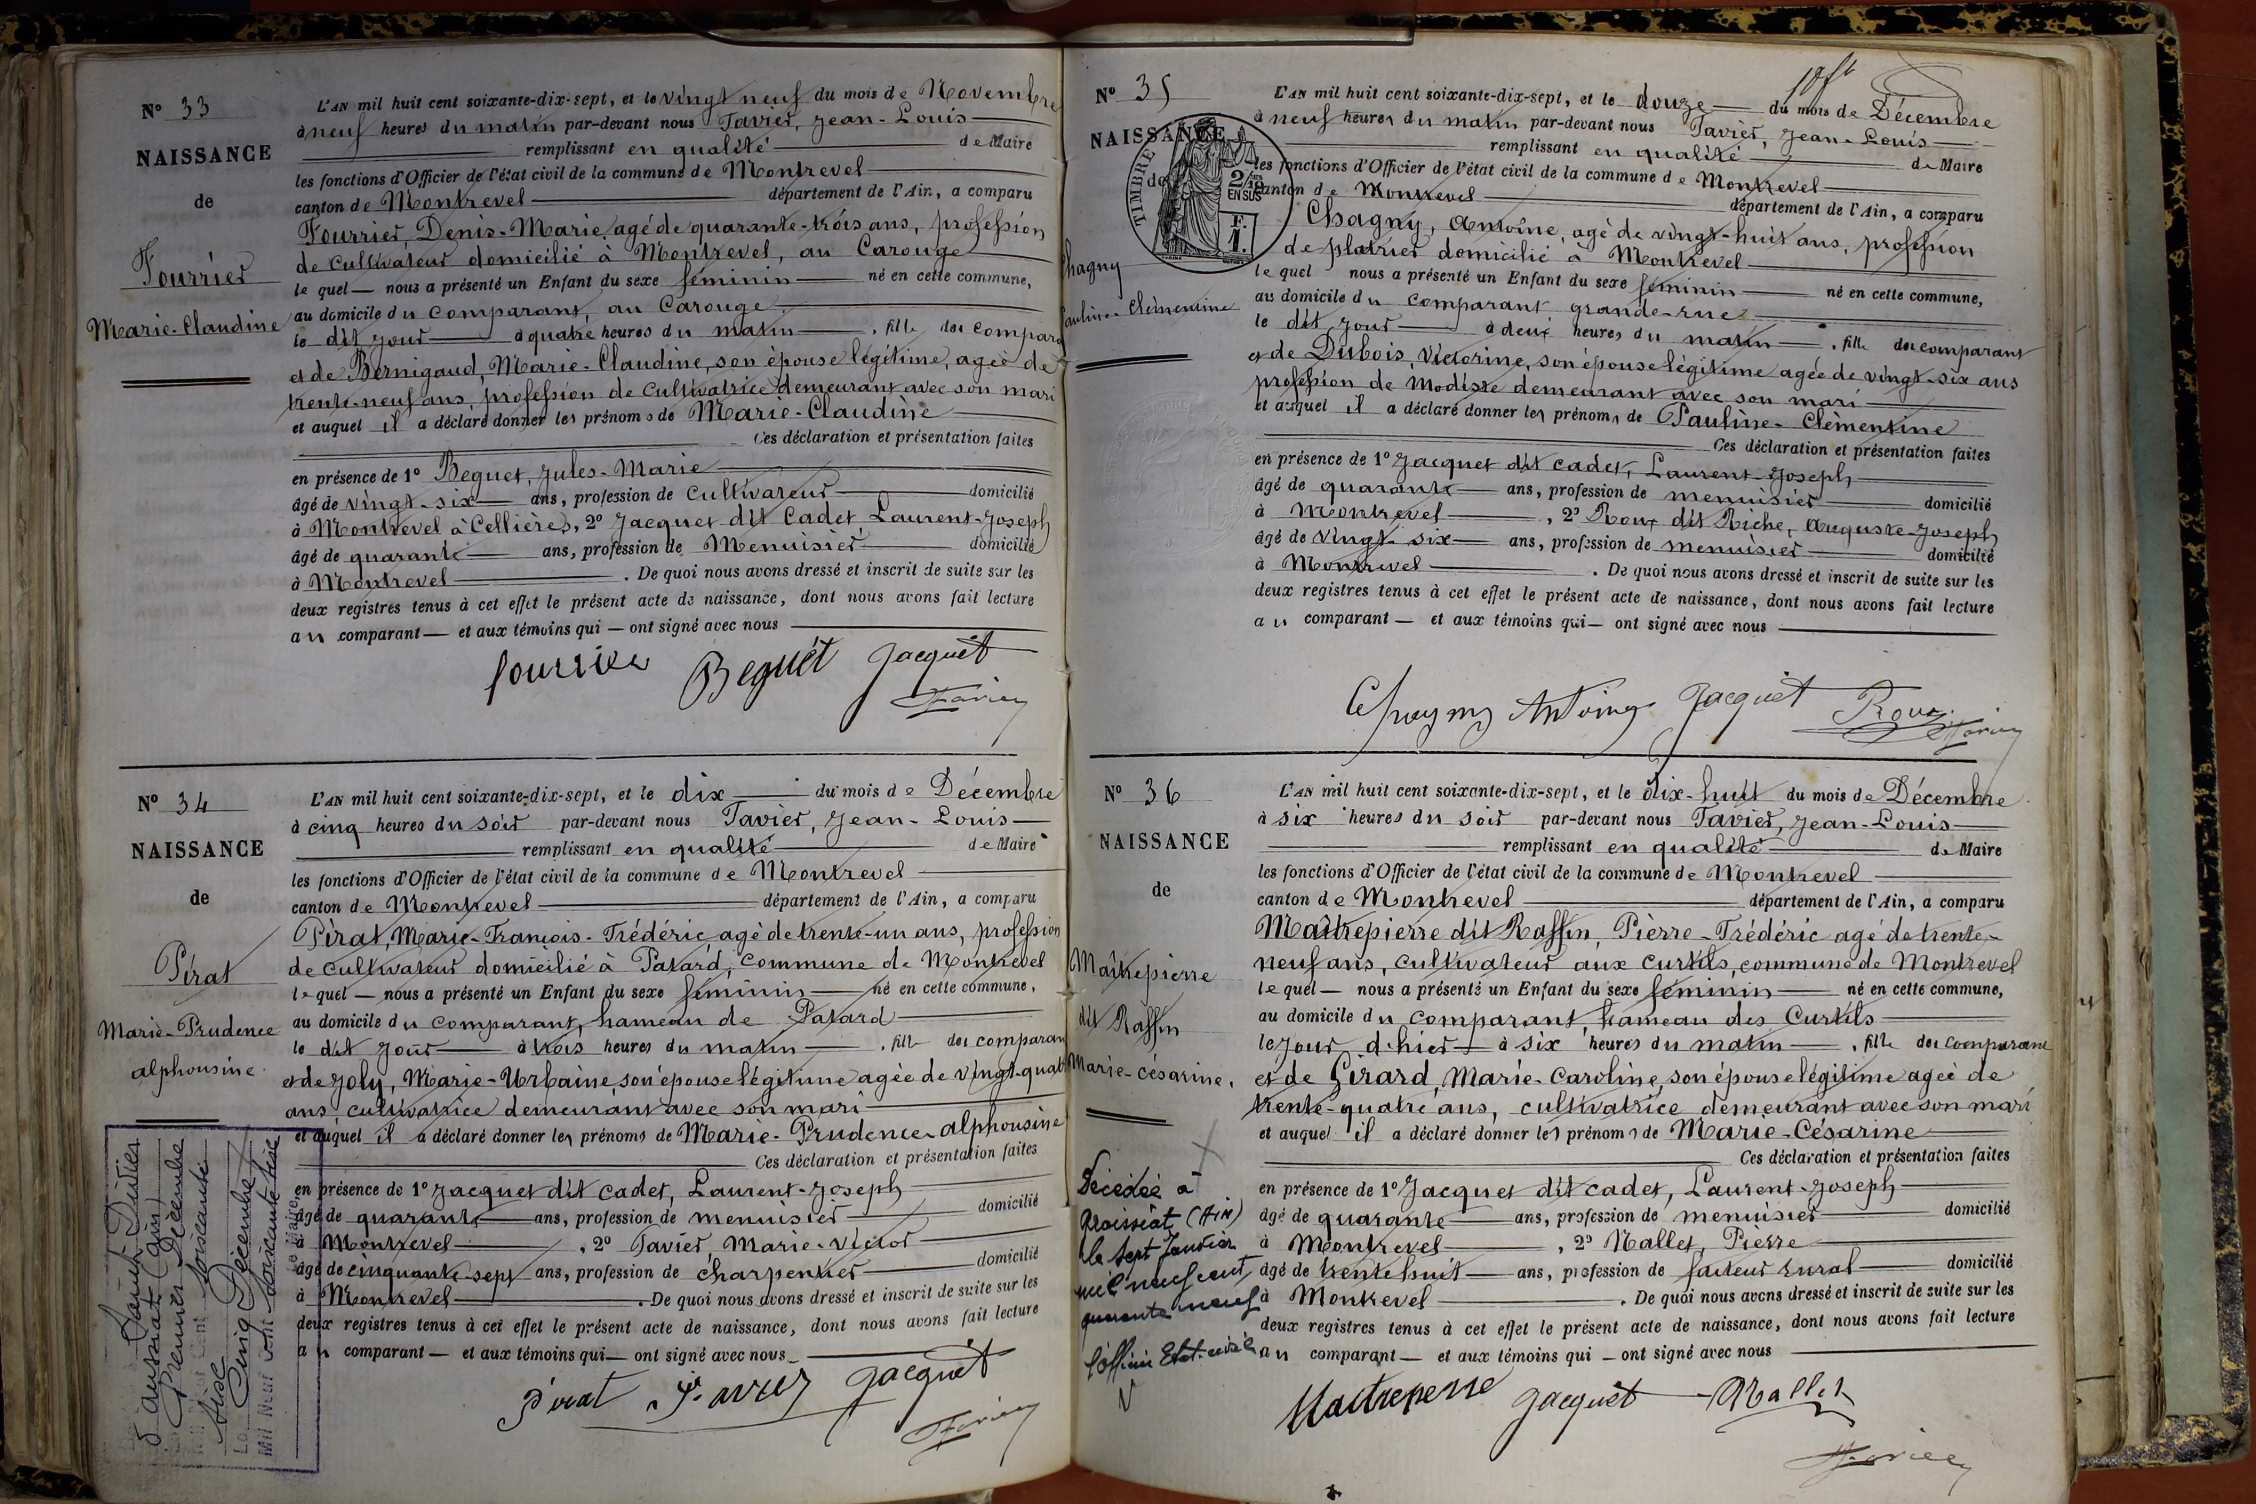 N° 33
NAISSANCE
de
Fourrier
Marie-Claudine
L'AN mil huit cent soixante-dix-sept, et le vingt neuf du mois de Novembre
à neuf heures du matin par-devant nous Tavier, Jean-Louis
remplissant en qualité de Maire
les fonctions d'Officier de l'état civil de la commune de Montrevel
canton de Montrevel département de l'Ain, a comparu
Fourrier, Denis-Marie, agé de quarante-trois ans, profession
de cultivateur domicilié à Montrevel, au Carouge
le quel nous a présenté un Enfant du sexe féminin né en cette commune,
au domicile du comparant, au Carouge
le dit jour à quatre heures du matin, fille du compara
et de Bernigaud, Marie-Claudine, son épouse légitime, ageè de
trente-neuf ans, profession de cultivatrice demeurant avec son mari
et auquel il a déclaré donner les prénoms de Marie-Claudine
Ces déclaration et présentation faites
en présence de 1° Beguet, Jules-Marie
âgé de vingt-six ans, profession de cultivateur domicilié
à Montrevel à Cellières, 2° Jacquet dit Cadet, Laurent-Joseph
âgé de quarante ans, profession de Menuisier domicilié
à Montrevel. De quoi nous avons dressé et inscrit de suite sur les
deux registres tenus à cet effet le présent acte de naissance, dont nous avons fait lecture
au comparant et aux témoins qui ont signé avec nous
fourrier Beguét Jacquet
Tavier
N° 34
NAISSANCE
de
Pirat
Marie-Prudence
alphonsine
L'AN mil huit cent soixante-dix-sept, et le dix du mois de Décembre
à cinq heures du soir par-devant nous Tavier, Jean-Louis
remplissant en qualité de Maire
les fonctions d'Officier de l'état civil de la commune de Montrevel
canton de Montrevel département de l'Ain, a comparu
Pirat, Marie-François-Frédéric agé de trente-un ans, profession
de cultivateur domicilié à Patard, commune de Montrevel
le quel nous a présenté un Enfant du sexe féminin né en cette commune,
au domicile du comparant, hameau de Patard
le dit jour à trois heures du matin, fille du comparan
et de Joly, Marie-Urbaine, son épouse légitime agée de vingt-quatr
ans cultivatrice demeurant avec son mari
et auquel il a déclaré donner les prénoms de Marie-Prudence-alphonsine
Ces déclaration et présentation faites
en présence de 1° Jacquet dit cadet, Laurent-Joseph
âgé de quarante ans, profession de menuisier domicilié
à Montrevel, 2° Tavier, Marie-Victor
âgé de cinquante-sept ans, profession de charpentier domicilié
à Montrevel. De quoi nous avons dressé et inscrit de suite sur les
deux registres tenus à cet effet le présent acte de naissance, dont nous avons fait lecture
au comparant et aux témoins qui ont signé avec nous
Pirat Tavier Jacquet
Tavier
Premier Décembre
soixante
Cinq Décembre
Mil Neuf cent soixante trise
Le Maire,
N° 35
NAISSANCE
de
Chagny
Pauline-Clémentine
TIMBRE
2/10 EN SUS
F.
1.
L'AN mil huit cent soixante-dix-sept, et le douze du mois de Décembre
à neuf heures du matin par-devant nous Tavier, Jean-Louis
remplissant en qualité de Maire
les fonctions d'Officier de l'état civil de la commune de Montrevel
canton de Montrevel département de l'Ain, a comparu
Chagny, Antoine, agé de vingt-huit ans, profession
de platrier domicilié à Montrevel
le quel nous a présenté un Enfant du sexe féminin né en cette commune,
au domicile du comparant grande-rue
le dit jour à deux heures du matin, fille du comparant
et de Dubois, Victorine, son épouse légitime agée de vingt-six ans
profession de Modiste demeurant avec son mari
et auquel il a déclaré donner les prénoms de Pauline-Clémentine
Ces déclaration et présentation faites
en présence de 1° Jacquet dit cadet, Laurent-Joseph
âgé de quarante ans, profession de menuisier domicilié
à Montrevel, 2° Roux dit Riche, Auguste-Joseph
âgé de vingt-six ans, profession de menuisier domicilié
à Montrevel. De quoi nous avons dressé et inscrit de suite sur les
deux registres tenus à cet effet le présent acte de naissance, dont nous avons fait lecture
au comparant et aux témoins qui ont signé avec nous
Chagny Antoine Jacquet Roux
Tavier
N° 36
NAISSANCE
de
Maîtrepierre
dit Raffin
Marie-césarine.
L'AN mil huit cent soixante-dix-sept, et le dix-huit du mois de Décembre
à six heures du soir par-devant nous Tavier, Jean-Louis
remplissant en qualité de Maire
les fonctions d'Officier de l'état civil de la commune de Montrevel
canton de Montrevel département de l'Ain, a comparu
Maîtrepierre dit Raffin, Pierre-Frédéric agé de trente-
neuf ans, cultivateur aux curtils, commune de Montrevel
le quel nous a présenté un Enfant du sexe féminin né en cette commune,
au domicile du comparant, hameau des Curtils
le jour d'hier à six heures du matin, fille du comparant
et de Girard, Marie-Caroline, son épouse légitime ageè de
trente-quatre ans, cultivatrice demeurant avec son mari
et auquel il a déclaré donner les prénoms de Marie-Césarine
Ces déclaration et présentation faites
en présence de 1° Jacquet dit cadet, Laurent-Joseph
âgé de quarante ans, profession de menuisier domicilié
à Montrevel, 2° Nallet, Pierre
âgé de trente huit ans, profession de facteur rural domicilié
à Montrevel. De quoi nous avons dressé et inscrit de suite sur les
deux registres tenus à cet effet le présent acte de naissance, dont nous avons fait lecture
au comparant et aux témoins qui ont signé avec nous
Maitrepierre Jacquet Nallet
Tavier
Décédée à
Groissiat (Ain)
le sept Janvier
mil neuf cent
quarante neuf
l'officier Etat-civil